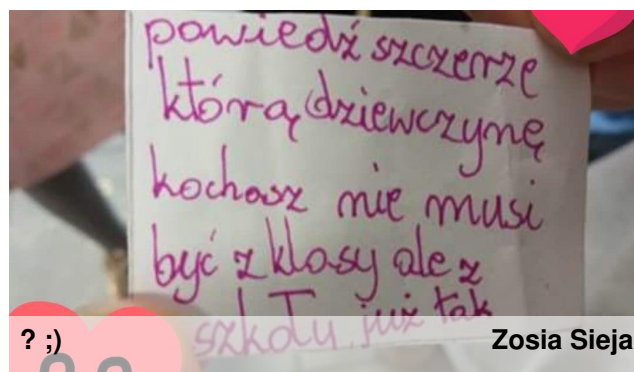 powiedź szczerze
którą dziewczynę
kochasz nie musi
być z klasy ale z
szkoły już tak
? ;)
Zosia Sieja